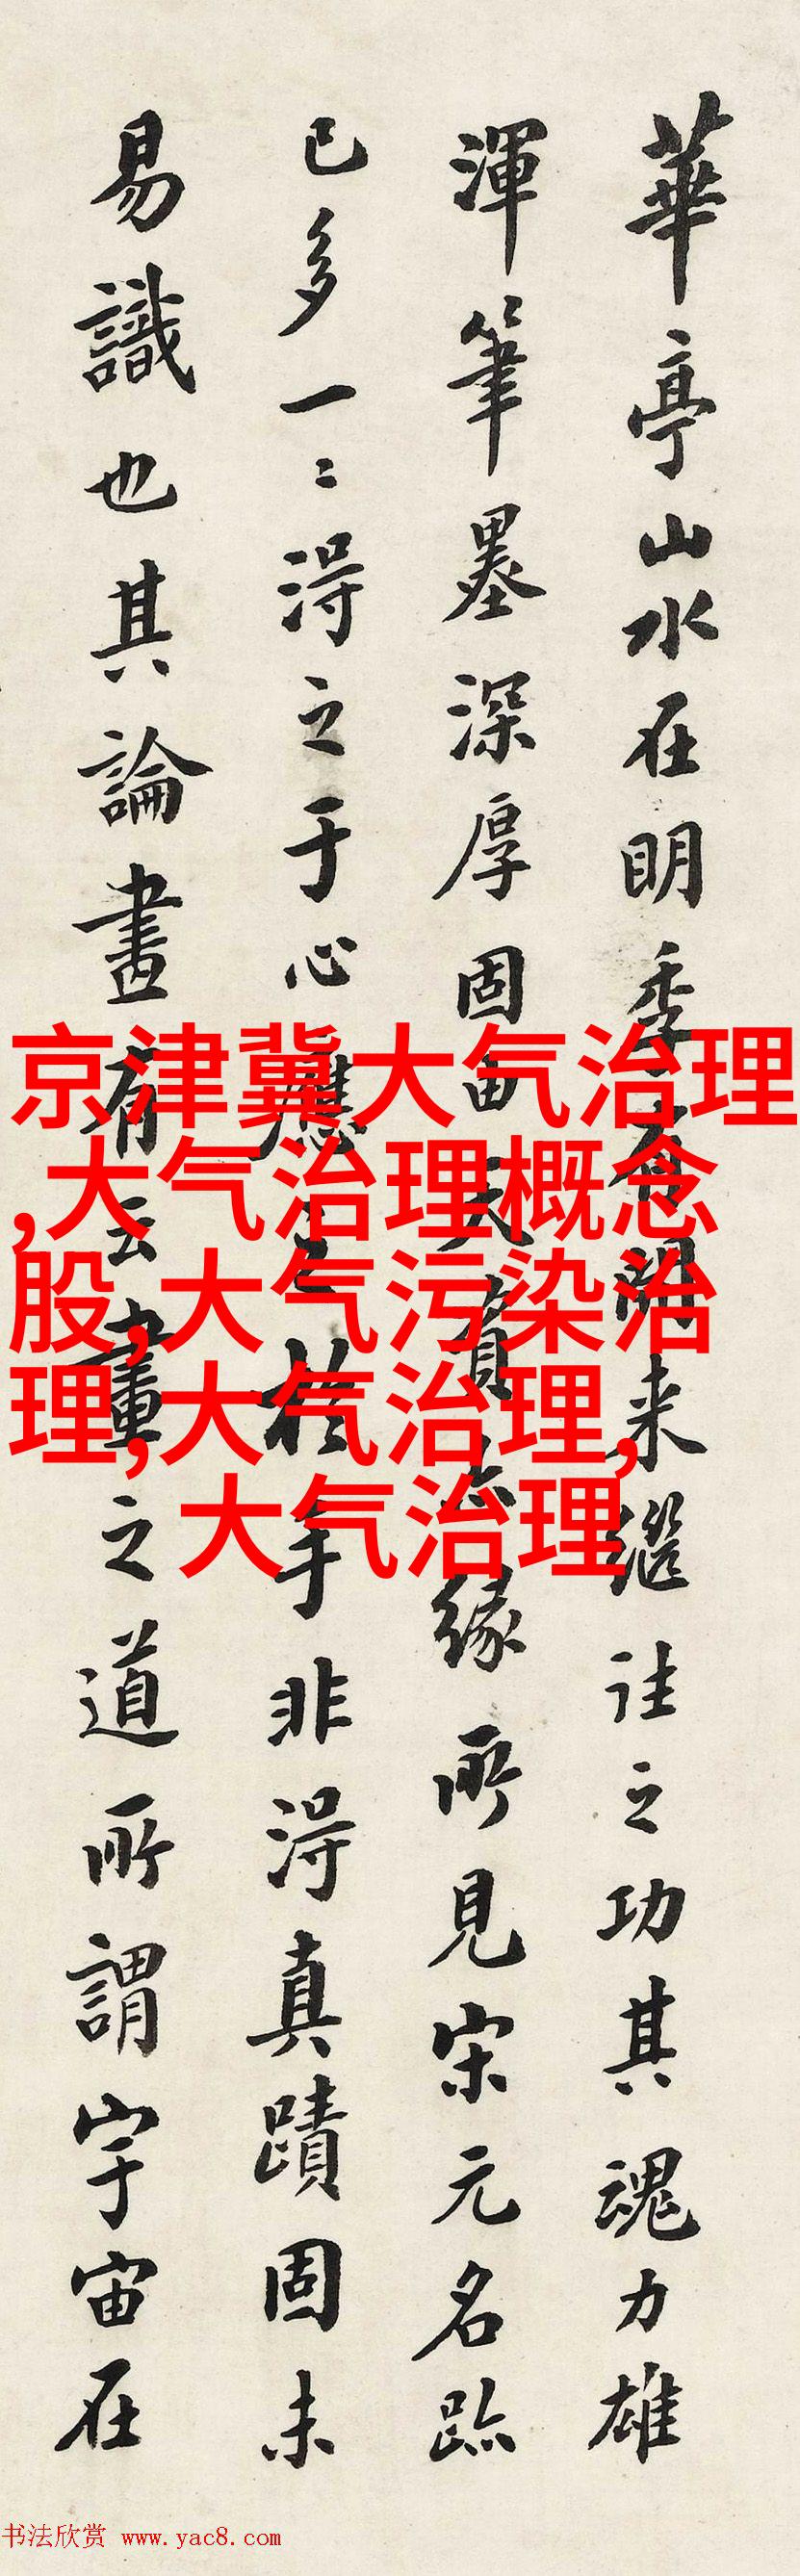 華亭山水在明季有開来繼往之功其魂力雄
渾筆墨深厚固由天資亦緣所見宋元名跡
已多一〻得之于心應之於手非得真蹟固未
易識也其論畫有云畫之道所謂宇宙在
京津冀大气治理
,大气治理概念
股,大气污染治
理,大气治理,
大气治理
书法欣赏 www.yac8.com